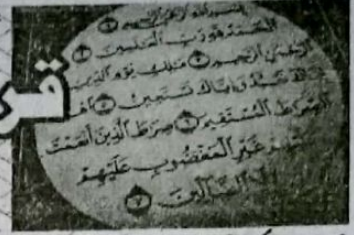 بسم الله الرحمن الرحيم ۝١
الحمد لله رب العلمين ۝٢
الرحمن الرحيم ۝٣ ملك يوم الدين
نعبد واياك نستعين ۝٥
الصرط المستقيم ۝٦ صرط الذين انعمت
عليهم غير المغضوب عليهم
ولا الضالين ۝٧
قر